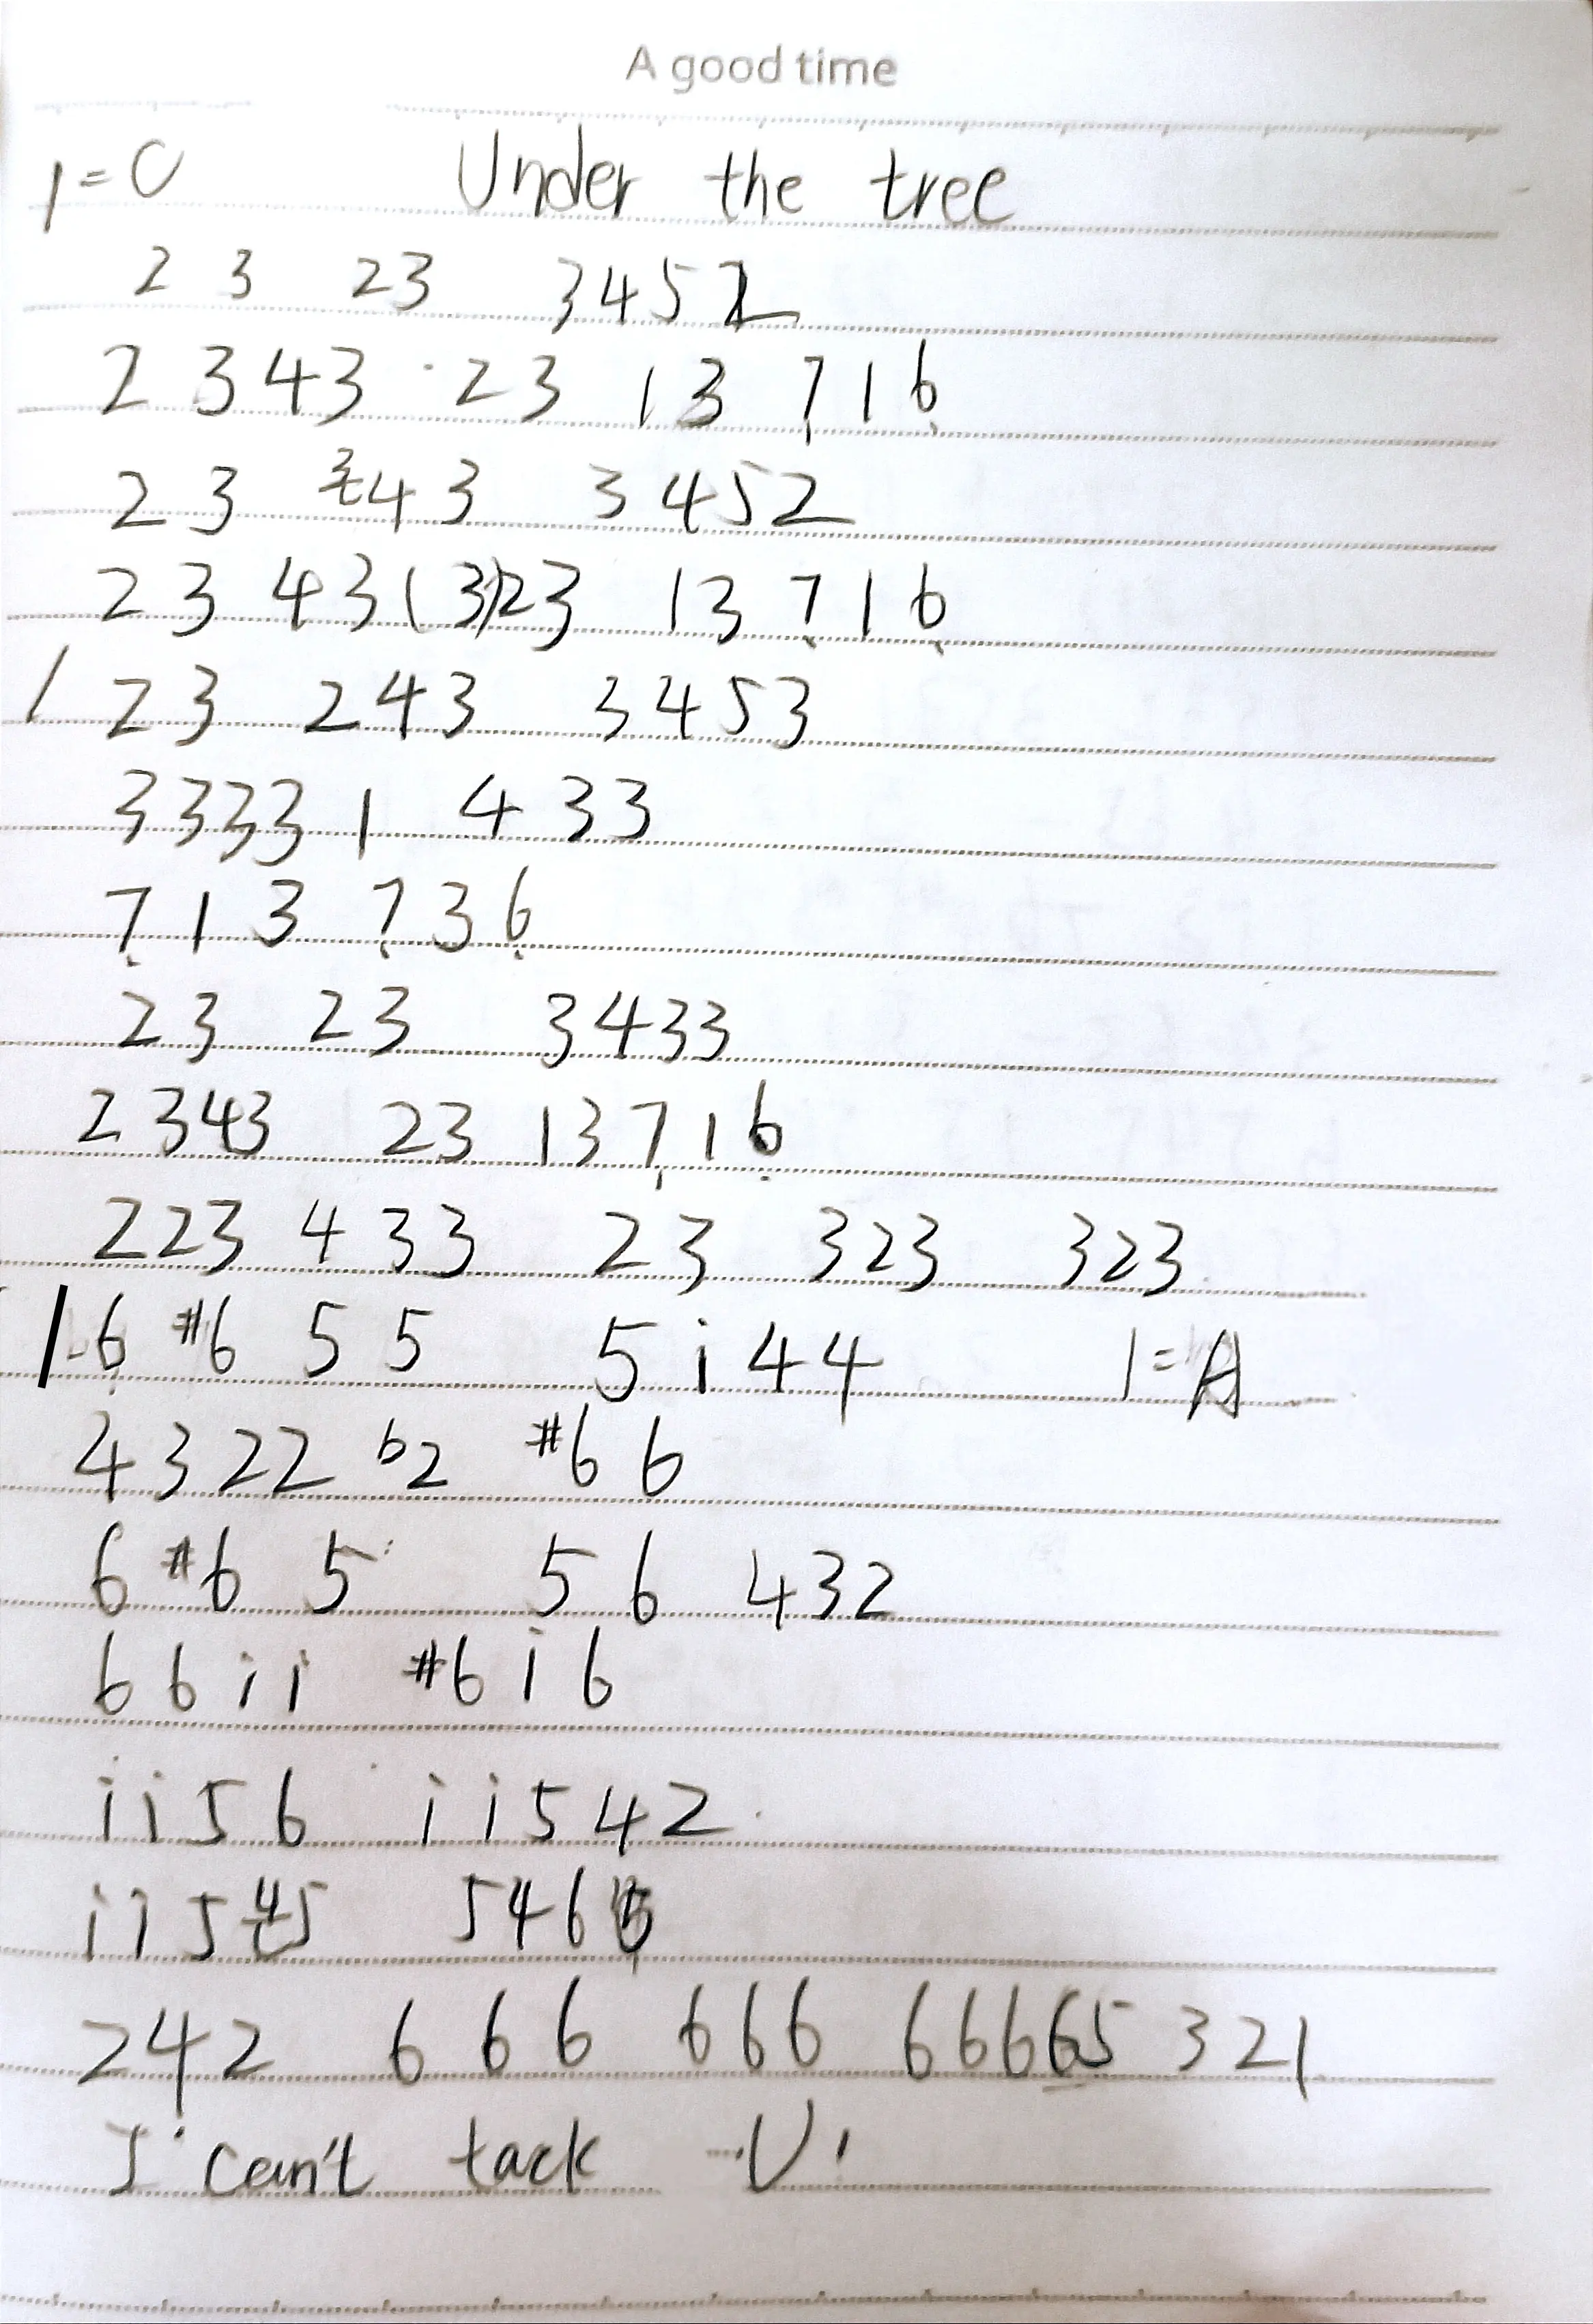 A good time
1=C Under the tree
2 3 23 3452
2 343 23 13 7̣ 1 6̣
2 3 43 3452
2 3 43(3)23 13 7̣ 1 6̣
/ 23 243 3453
3333 1 4 33
7̣ 1 3 7̣ 3 6̣
23 23 3433
2 343 23 13 7̣ 1 6̣
223 4 33 23 323 323
6 #6 5 5 5 i 4 4 1=A
4 3 2 2 b2 #6 6
6 #6 5 5 6 432
6 6 i i #6 i 6
i i 5 6 i i 5 4 2
i i 5 4 5 5 4 6
242 6 6 6 666 666665 321
I can't tack